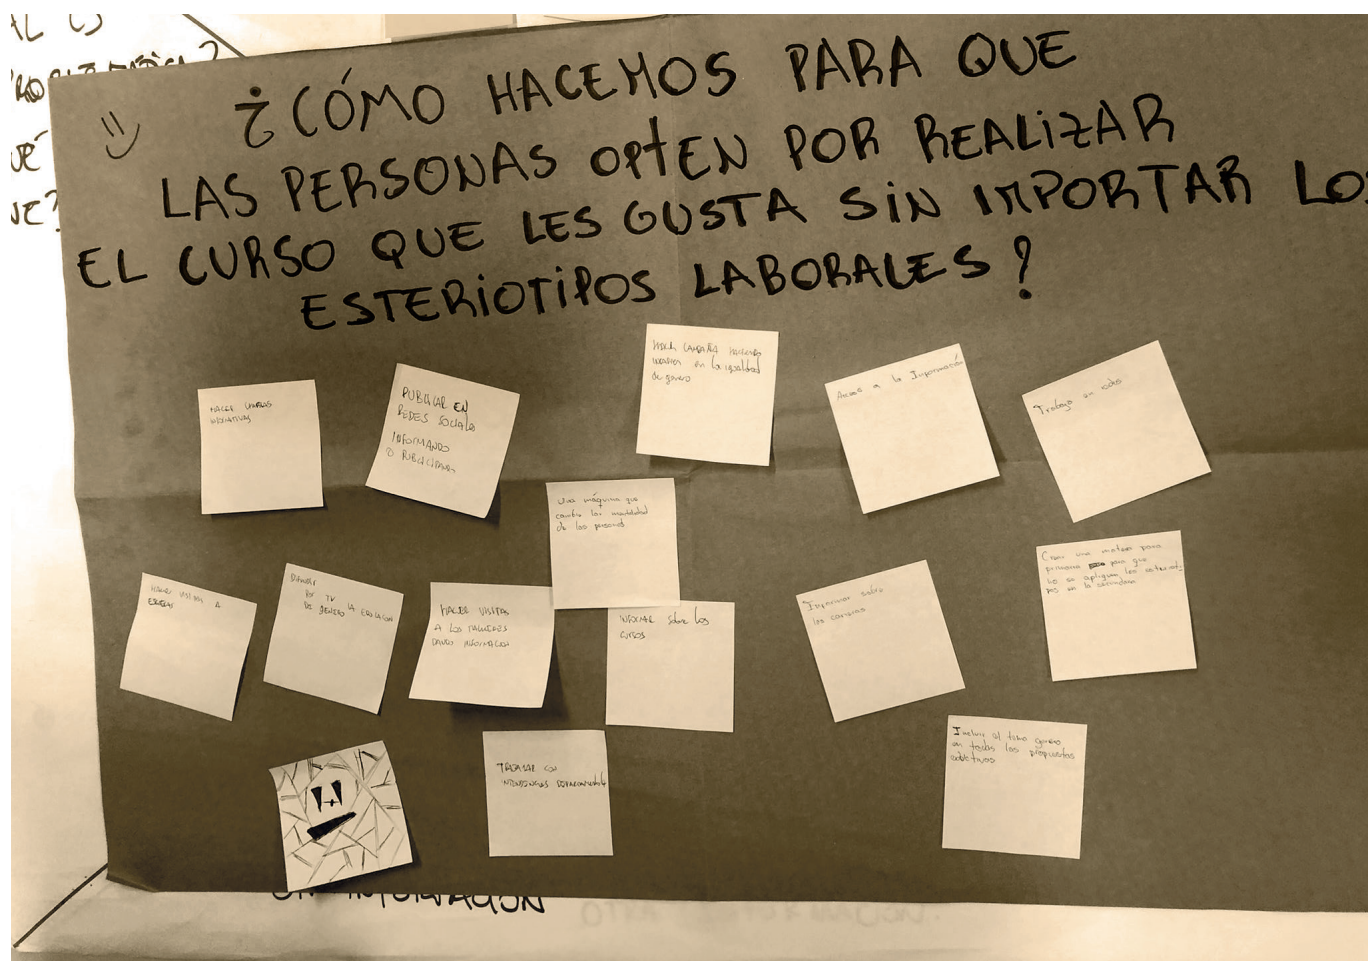 ¿CÓMO HACEMOS PARA QUE
LAS PERSONAS OPTEN POR REALIZAR
EL CURSO QUE LES GUSTA SIN IMPORTAR LOS
ESTERIOTIPOS LABORALES?
HACER CHARLAS
PUBLICAR EN
REDES SOCIALES
INFORMANDO
O PUBLICITANDO
HACER CAMPAÑA HACIENDO
en la igualdad
de genero
Acceso a la Información
Trabajo en
Una máquina que
cambie la mentalidad
de las personas
HACER VISITAS A
ESCUELAS
DIFUNDIR
POR TV LA
DE GENERO
HACER VISITAS
A LOS
DANDO INFORMACION
INFORMAR sobre los
cursos
Informar sobre
las carreras
Crear una materia para
primaria para que
no se apliquen los esteriot-
pos en la secundaria
TRABAJAR CON
INTENDENCIAS
Incluir el tema genero
en todas las propuestas
INFORMACIÓN